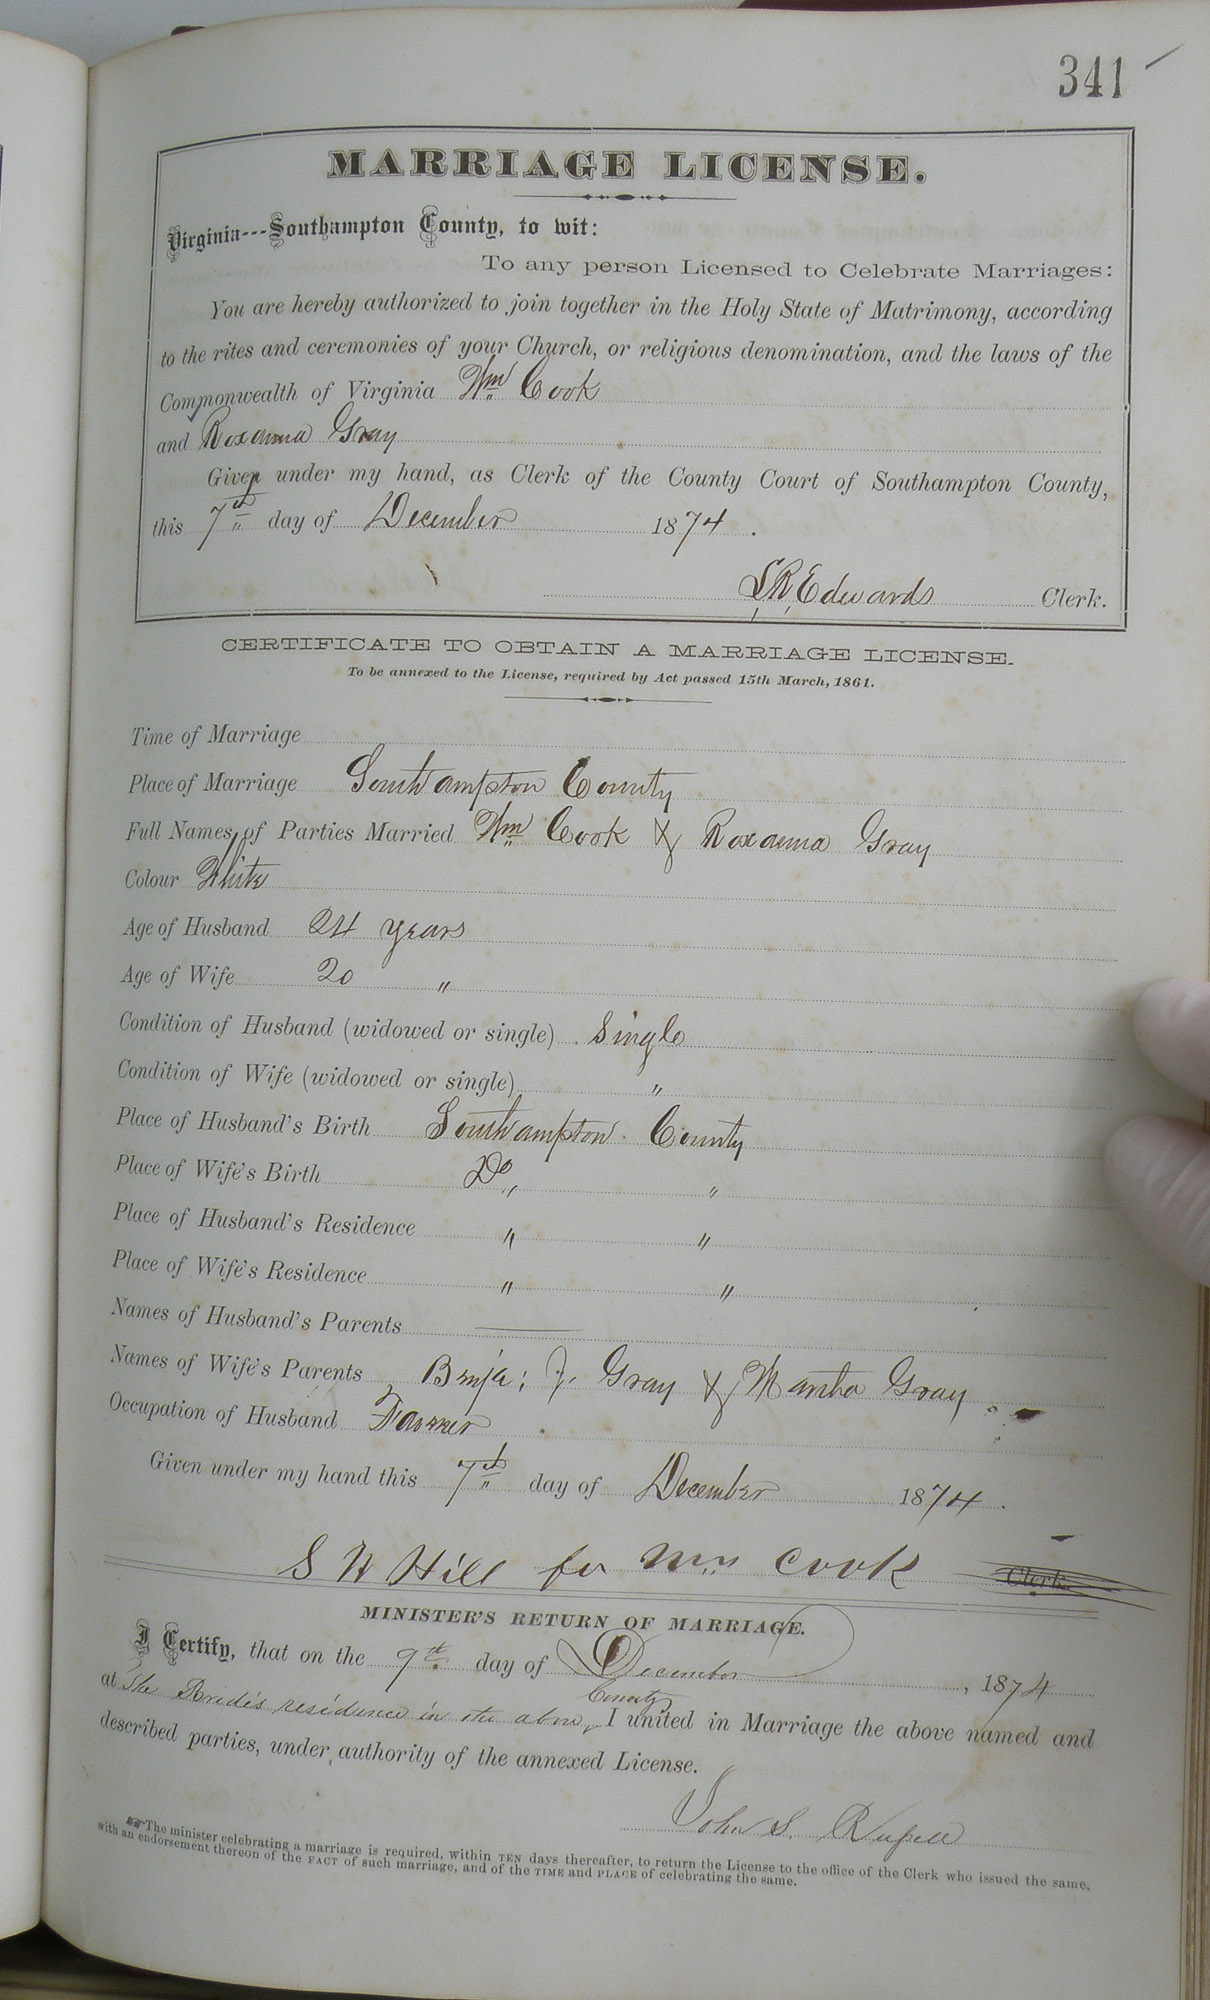 341
MARRIAGE LICENSE.
Virginia---Southampton County, to wit:
To any person Licensed to Celebrate Marriages:
You are hereby authorized to join together in the Holy State of Matrimony, according
to the rites and ceremonies of your Church, or religious denomination, and the laws of the
Commonwealth of Virginia Wm Cook
and Roxanna Gray
Given under my hand, as Clerk of the County Court of Southampton County,
this 7th day of December 1874.
L R Edwards Clerk.
CERTIFICATE TO OBTAIN A MARRIAGE LICENSE.
To be annexed to the License, required by Act passed 15th March, 1861.
Time of Marriage
Place of Marriage Southampton County
Full Names of Parties Married Wm Cook & Roxanna Gray
Colour White
Age of Husband 24 years
Age of Wife 20 "
Condition of Husband (widowed or single) Single
Condition of Wife (widowed or single) "
Place of Husband's Birth Southampton County
Place of Wife's Birth Do "
Place of Husband's Residence " "
Place of Wife's Residence " "
Names of Husband's Parents ——
Names of Wife's Parents Benja: F. Gray & Martha Gray
Occupation of Husband Farmer
Given under my hand this 7th day of December 1874.
S W Hill for Wm Cook Clerk
MINISTER'S RETURN OF MARRIAGE.
I Certify, that on the 9th day of December, 1874
at The Bride's residence in the above County, I united in Marriage the above named and
described parties, under authority of the annexed License.
John S.
The minister celebrating a marriage is required, within TEN days thereafter, to return the License to the office of the Clerk who issued the same,
with an endorsement thereon of the FACT of such marriage, and of the TIME and PLACE of celebrating the same.